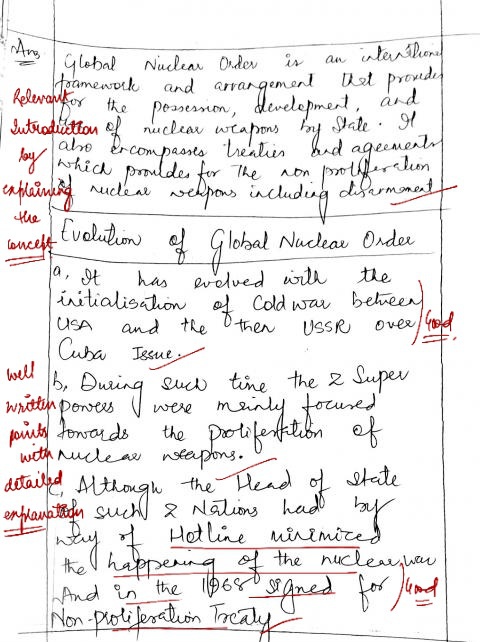 Ans
Global Nuclear Order is an
framework and arrangement that provides
for the possession, development, and
of nuclear weapons by State. It
also encompasses treaties and agreements
which provides for the non proliferation
of nuclear weapons including disarmament
Relevant
Introduction
by
explaining
the
concept
Evolution of Global Nuclear Order
a, It has evolved with the
initialisation of Cold war between
USA and the then USSR over
Cuba Issue.
Good
b, During such time the 2 Super
powers were mainly focused
towards the proliferation of
nuclear weapons.
well
written
points
with
detailed
explanation
c, Although the Head of State
of such 2 Nations had by
way of Hotline minimized
the happening of the nuclear war
And in the 1968 signed for
Non-Proliferation Treaty
Good